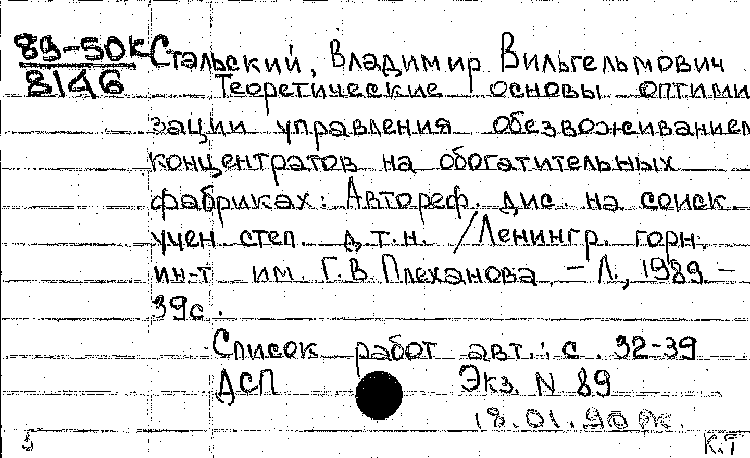 89-50к Стальский, Владимир Вильгельмович
8146 Теоретические основы оптими
зации управления обезвоживанием
концентратов на обогатительных
фабриках: Автореф. дис. на соиск.
учен. степ. д.т.н. / Ленингр. горн.
ин-т им. Г.В. Плеханова. - Л., 1989. -
39с.
Список работ авт.: с. 32-39
ДСП Экз. N 89
18.01.90
К.Т